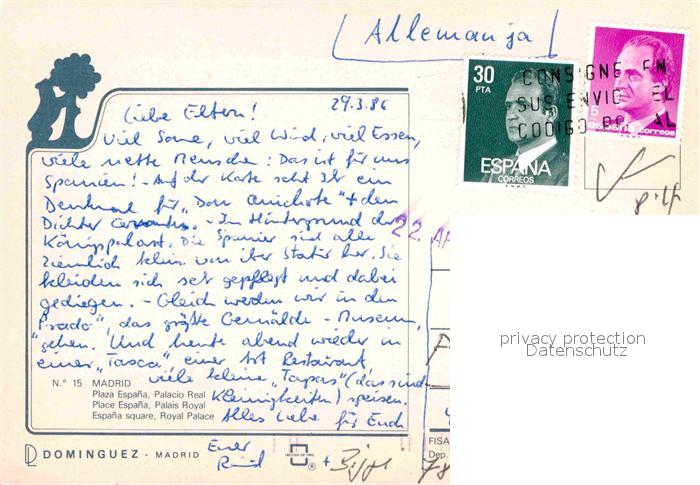 [Allemanja]
30
PTA
ESPAÑA
CORREOS
España correos
CONSIGNE EN
SUS ENVIOS EL
CODIGO POSTAL
29.3.86
Liebe Eltern!
Viel Sonne, viel Wind, viel Essen,
viele nette Menschen: Das ist für uns
Spanien! - Auf der Karte seht Ihr ein
Denkmal für „Don Quichote" + den
Dichter Cervantes. - Im Hintergrund der
Königspalast. Die Spanier sind alle
ziemlich klein von ihrer Statur her. Sie
kleiden sich sehr gepflegt und dabei
gediegen. - Gleich werden wir in den
„Prado", das größte Gemälde-Museum,
gehen. Und heute abend wieder in
einer „Tasca", einer Art Restaurant,
viele kleine „Tapas" (das sind
Kleinigkeiten) speisen.
Alles Liebe für Euch
Euer
+
22. AP
N.° 15 MADRID
Plaza España, Palacio Real
Place España, Palais Royal
España square, Royal Palace
DOMINGUEZ - MADRID
FISA
Dep.
78
privacy protection
Datenschutz